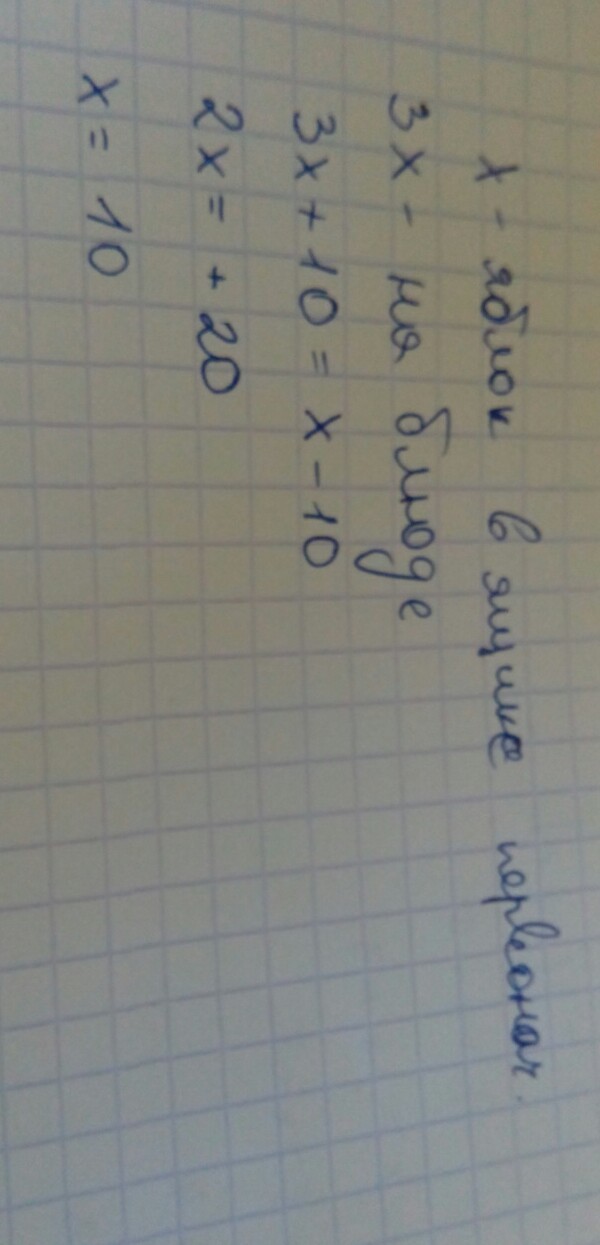 х - яблок в ящике первонач.
3х - на блюде
3х + 10 = х - 10
2х = + 20
х = 10